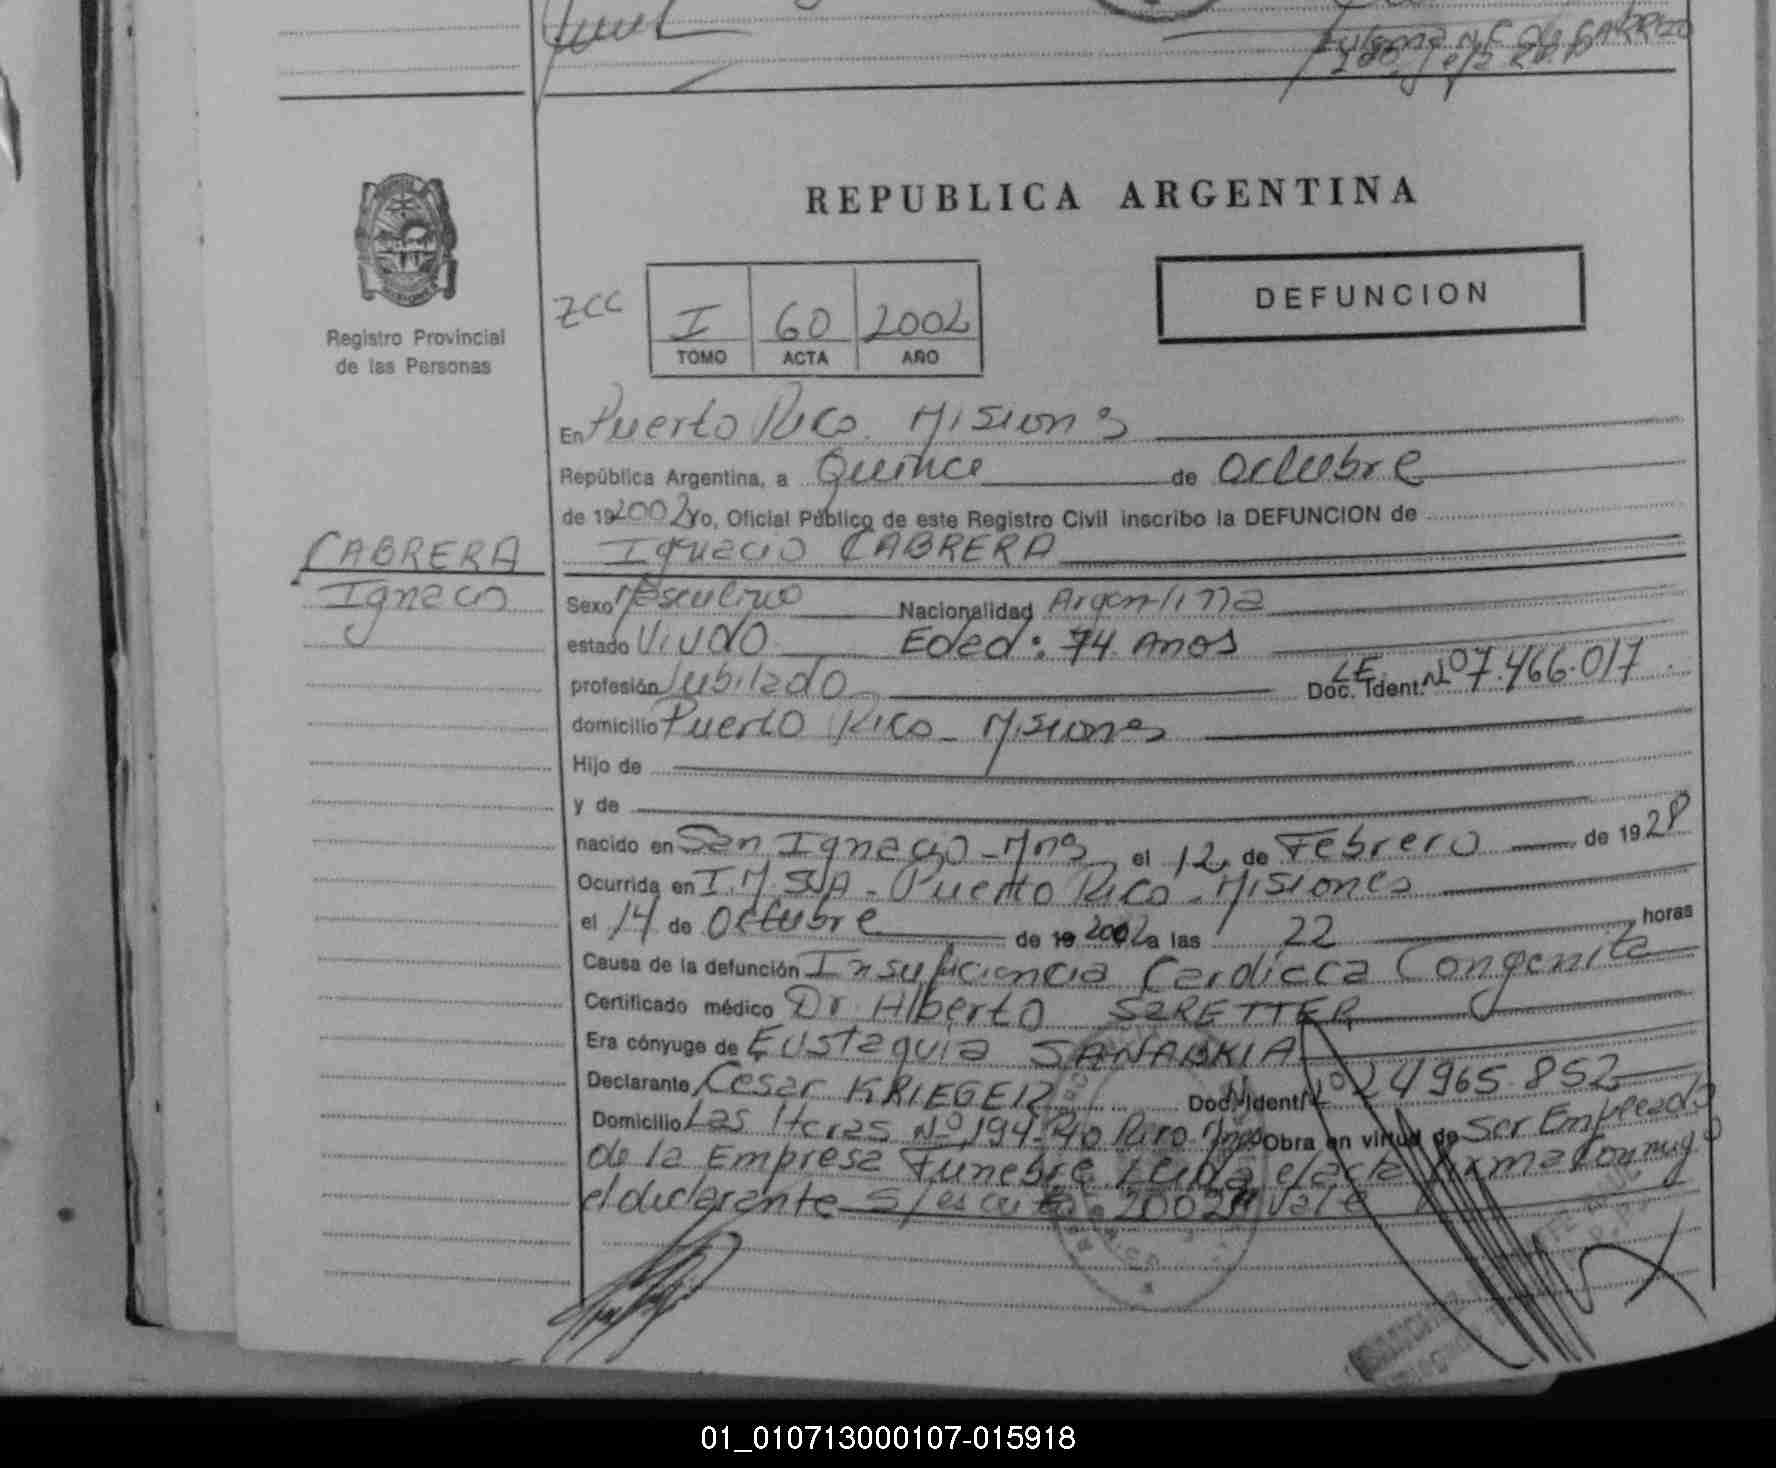 REPUBLICA ARGENTINA
DEFUNCION
Registro Provincial
de las Personas
ZCC
I 60 2002
TOMO ACTA AÑO
En Puerto Rico. Misiones
República Argentina, a Quince de Octubre
de 192002 Yo, Oficial Público de este Registro Civil inscribo la DEFUNCION de
CABRERA
Ignacio
Ignacio CABRERA
Sexo Masculino Nacionalidad Argentina
estado Viudo Edad: 74 Anos
profesión Jubilado Doc. Ident. L.E. Nº 7.466.017.
domicilio Puerto Rico - Misiones
Hijo de
y de
nacido en San Ignacio - Mns el 12 de Febrero de 1928
Ocurrida en I.M.S.A. - Puerto Rico - Misiones
el 14 de Octubre de 19 2002 a las 22 horas
Causa de la defunción Insuficiencia Cardiaca Congenita
Certificado médico Dr Alberto SZRETTER
Era cónyuge de Eustaquia SANABRIA
Declarante Cesar KRIEGER Doc. Ident. Nº 24965.852
Domicilio Las Heras Nº 194- Pto Rico Mnes Obra en virtud de Ser Empleado
de la Empresa Funebre Leida el acta firma conmigo
el declarante S/ 2002 Vale
01_010713000107-015918